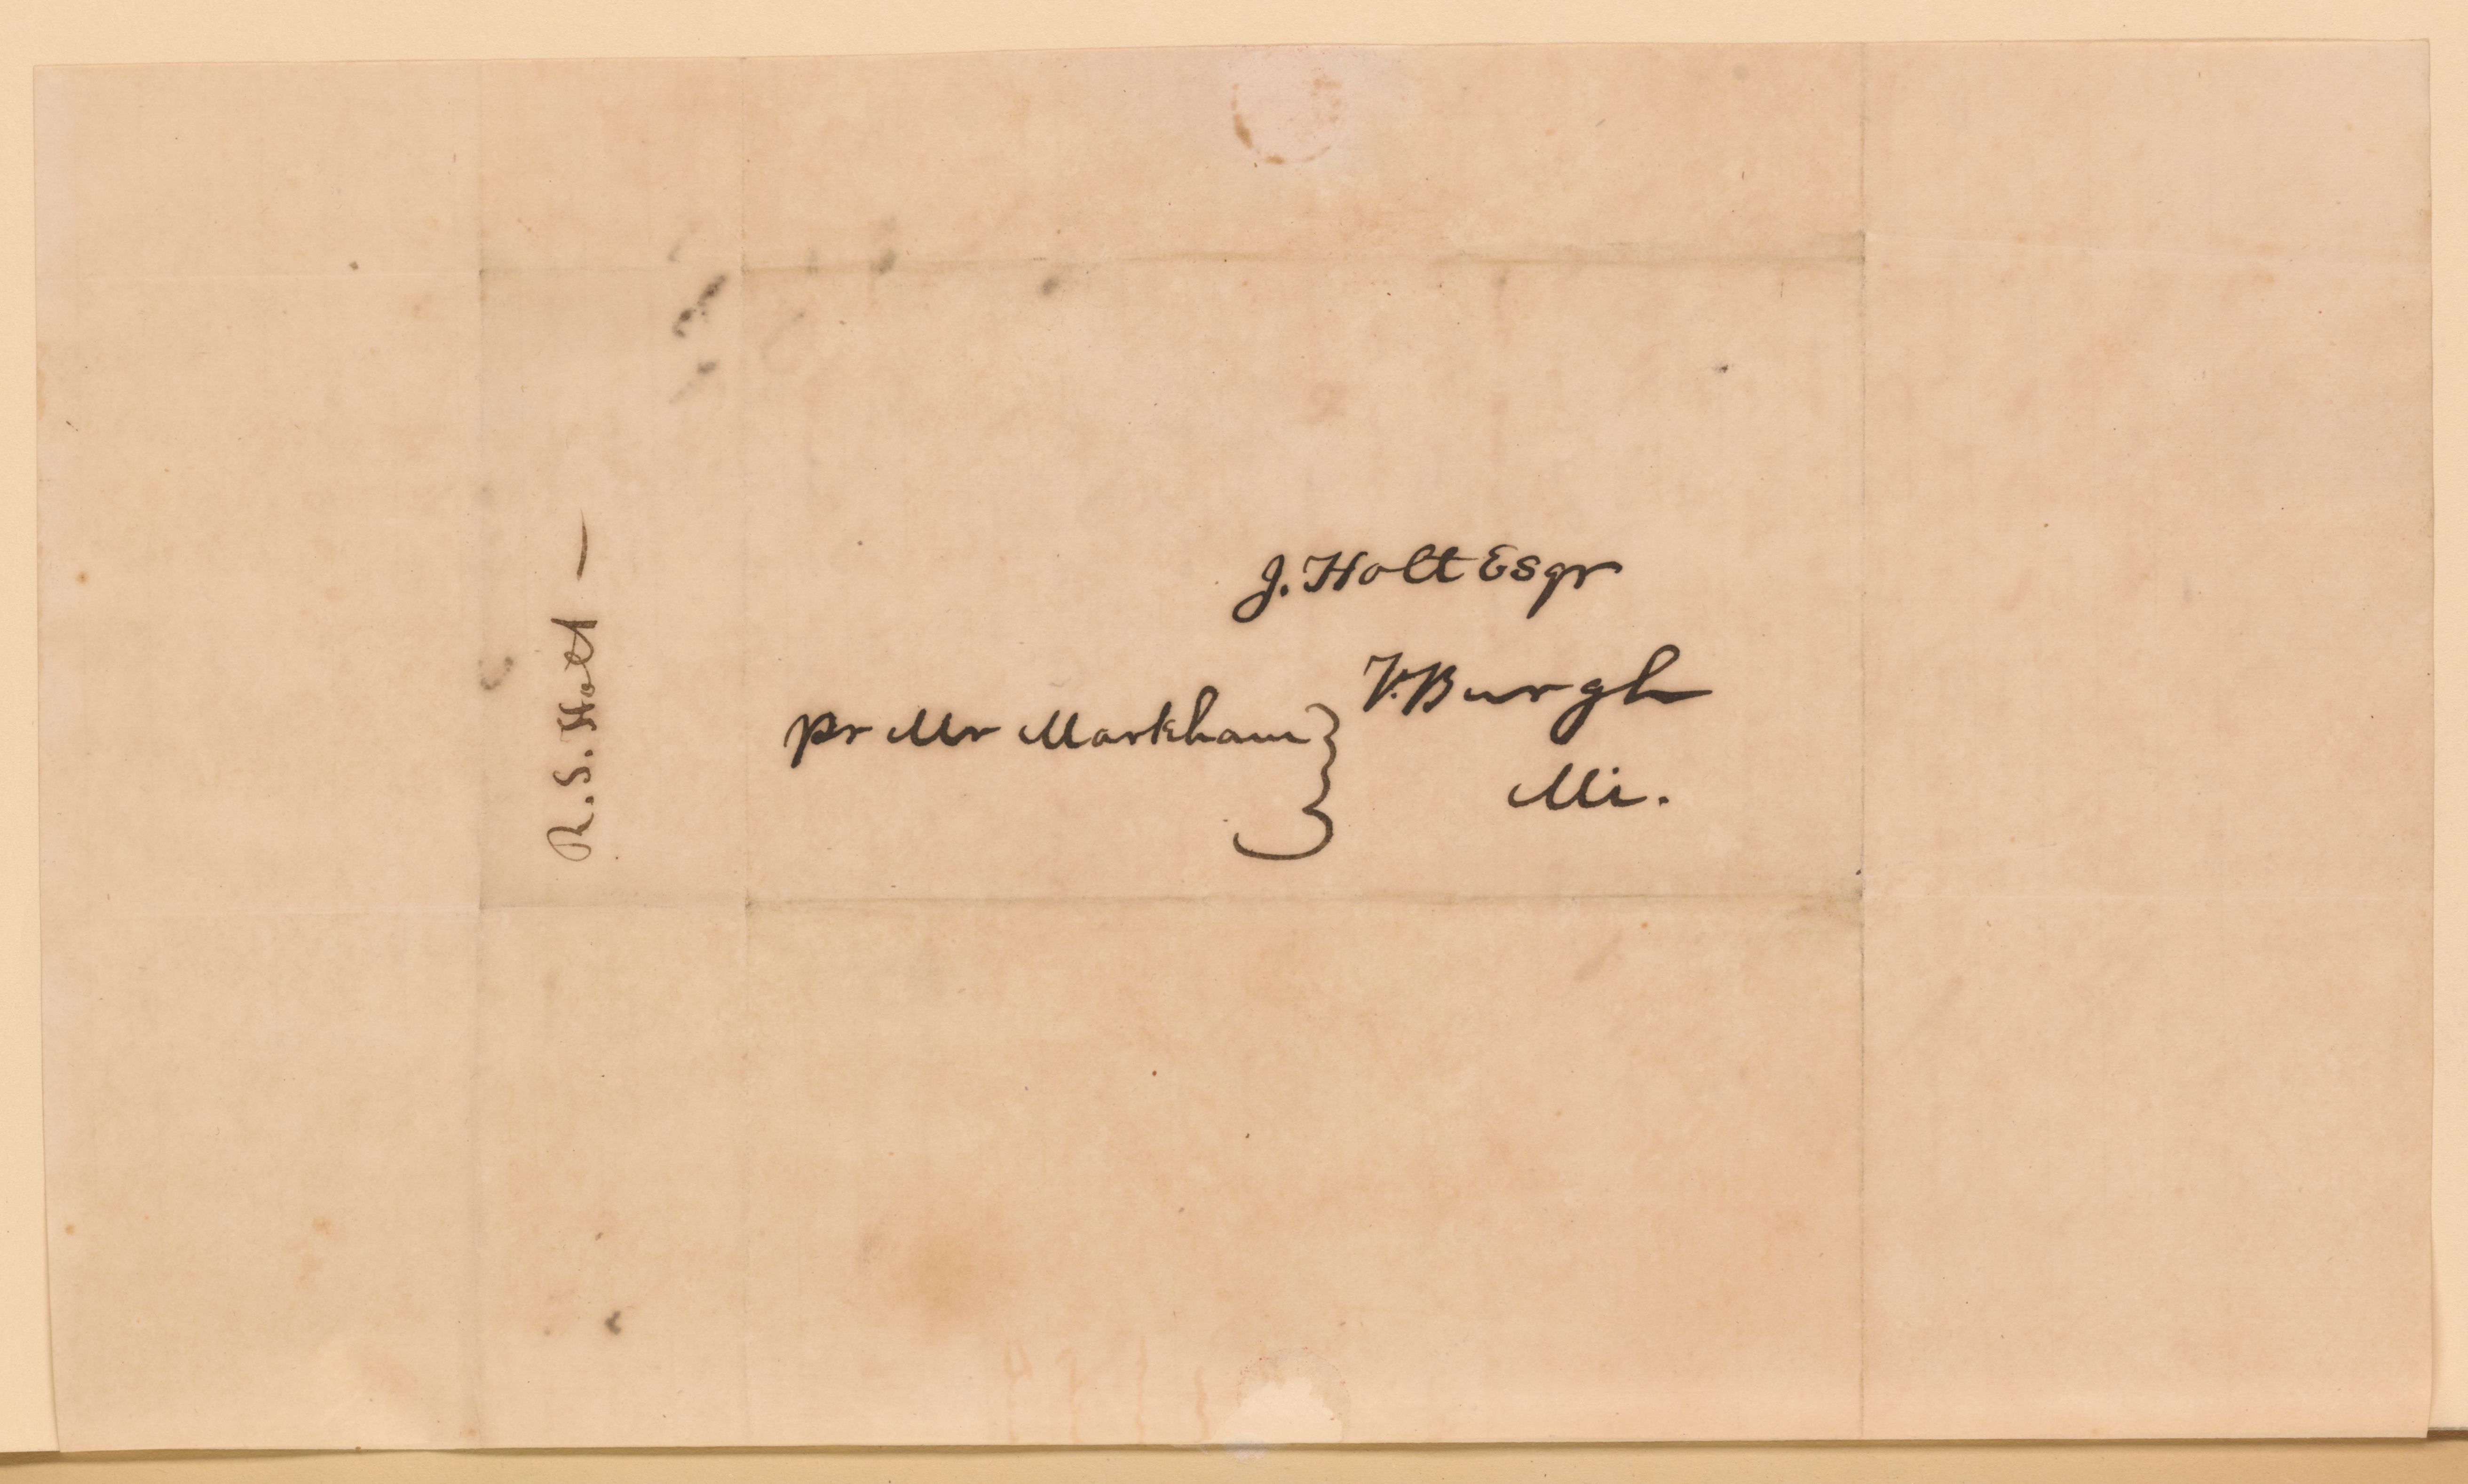 J. Holt Esqr
V.Burgh
Mi.
pr Mr Markham
R. S. Holt —